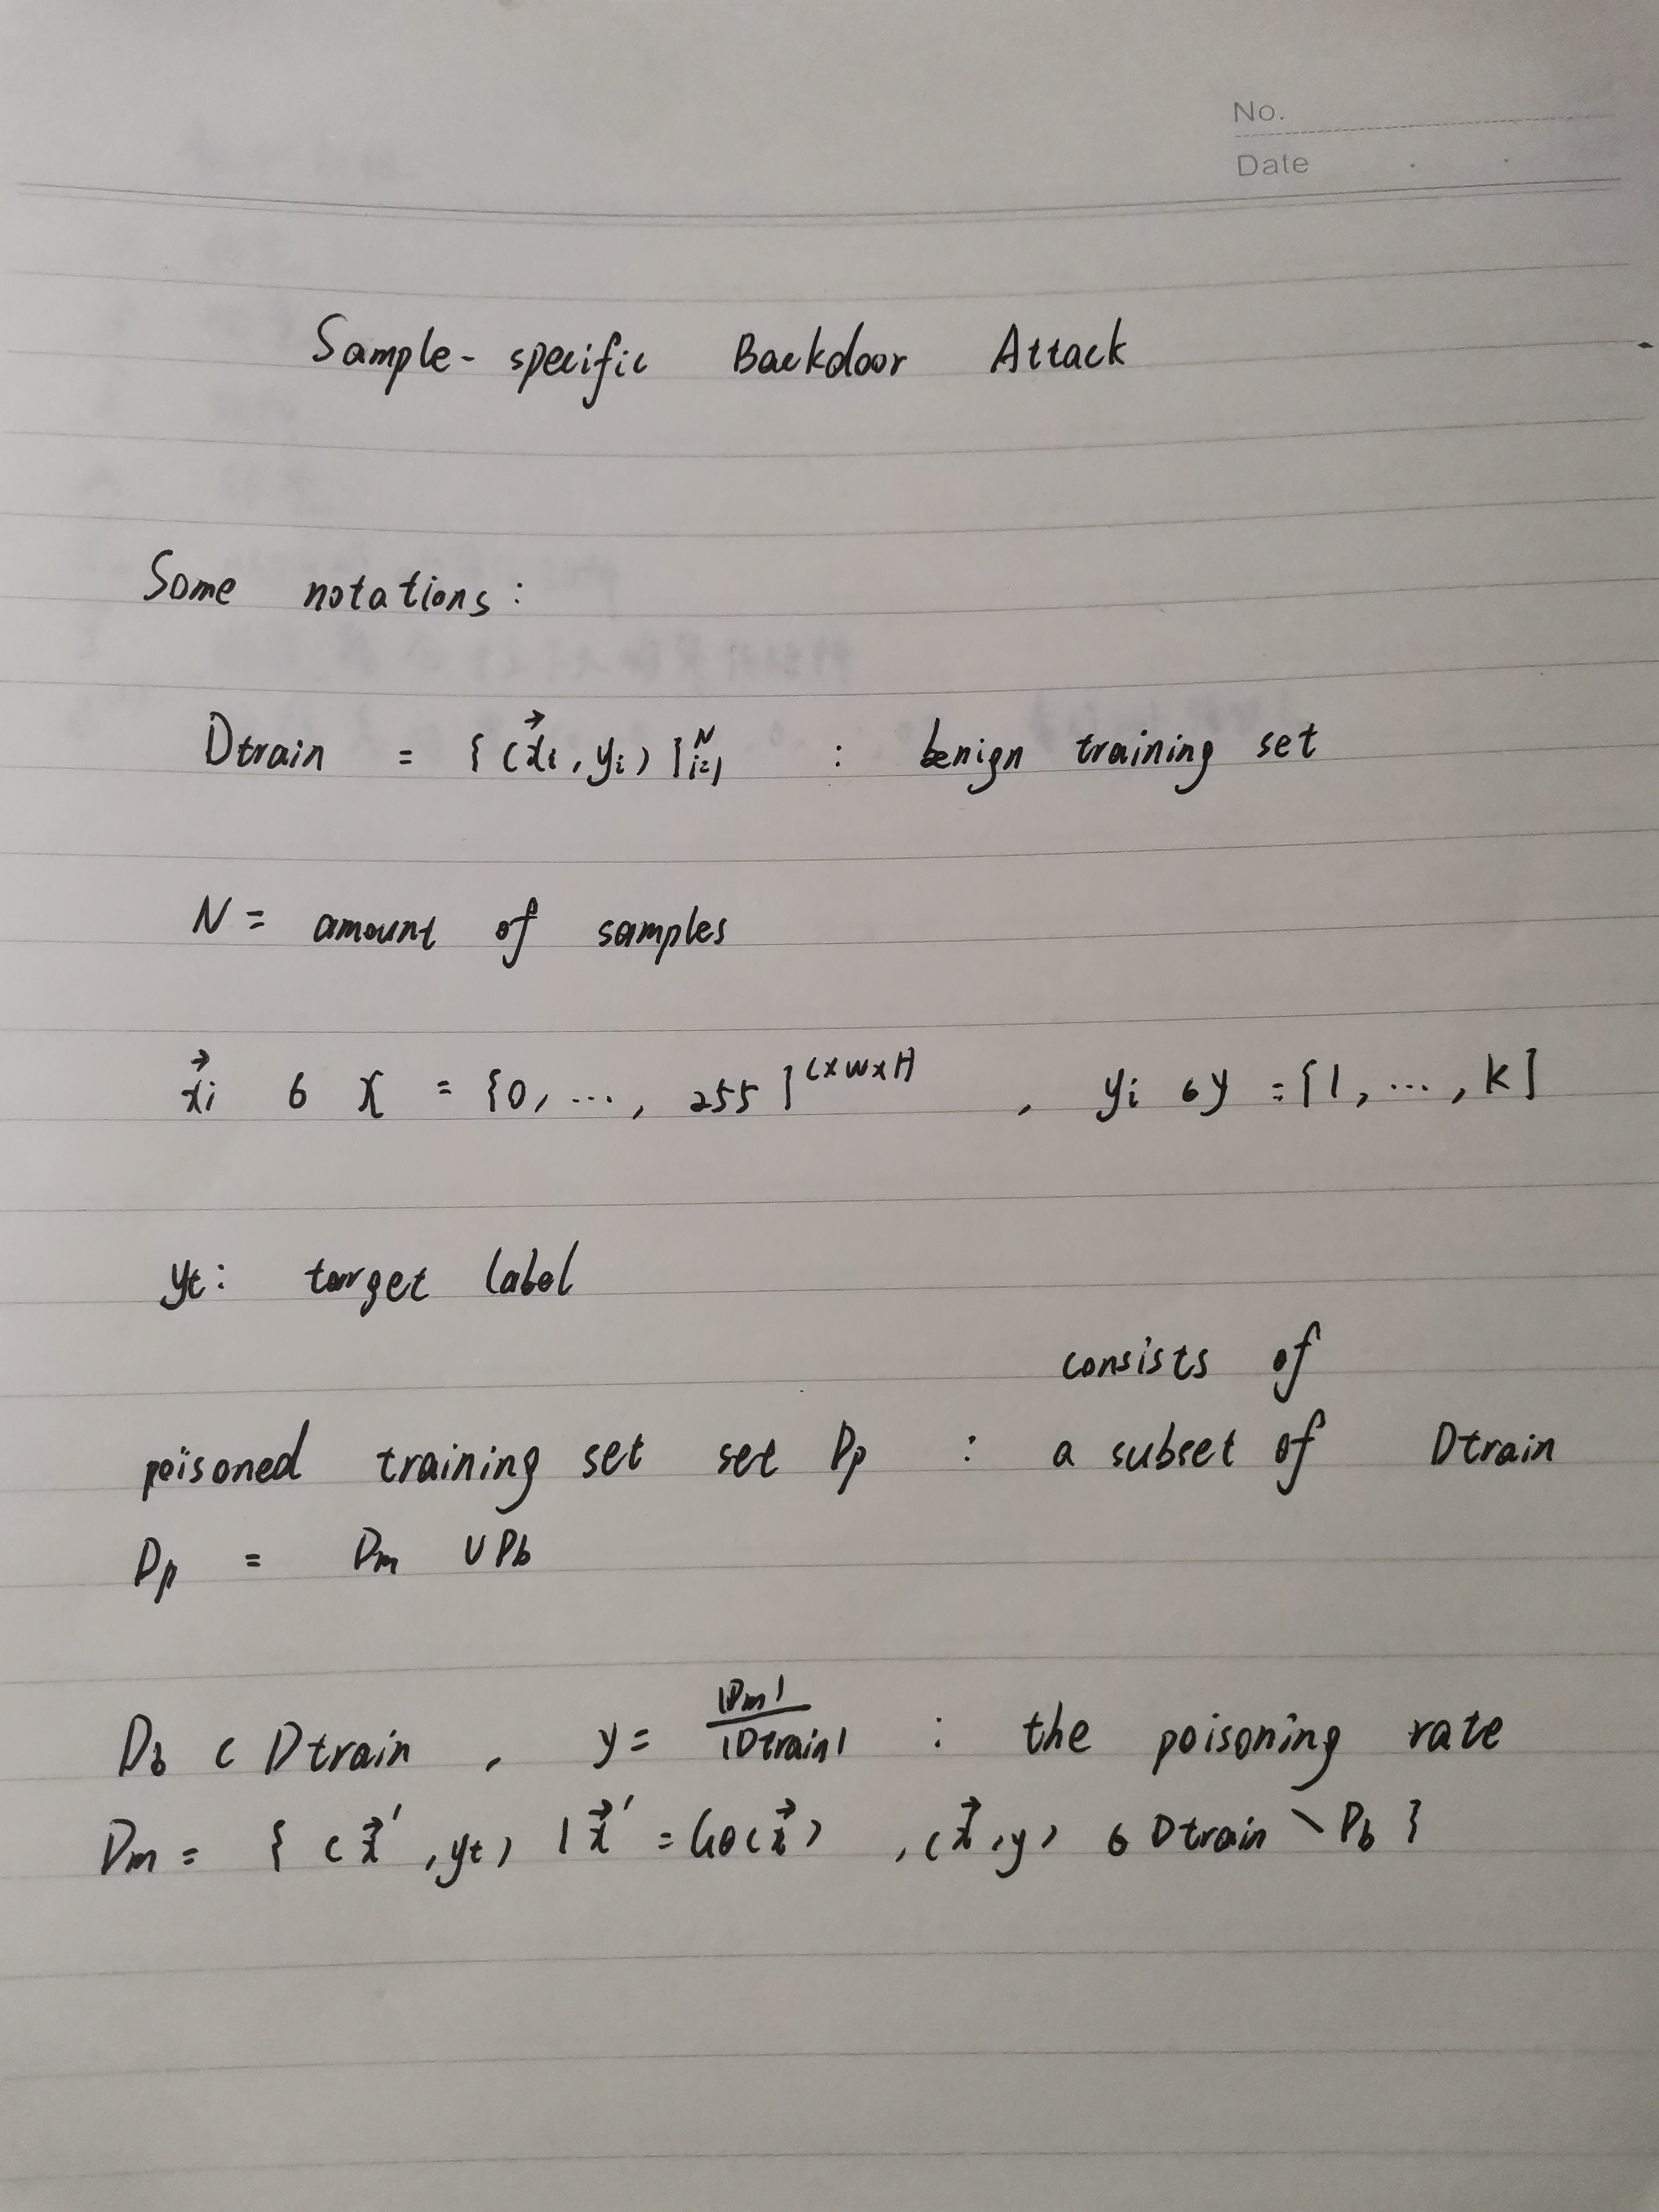 No.
Date
Sample-specific Backdoor Attack
Some notations:
Dtrain = {(x⃗i, yi)}ᴺᵢ₌₁ : benign training set
N = amount of samples
x⃗i ∈ X = {0, ..., 255}^{C×W×H} , yi ∈ y = {1, ..., K}
yt: target label
consists of
poisoned training set set Dp : a subset of Dtrain
Dp = Dm ∪ Db
Db ⊂ Dtrain , γ = |Dm| / |Dtrain| : the poisoning rate
Dm = {(x⃗', yt) | x⃗' = Gθ(x⃗) , (x⃗, y) ∈ Dtrain \ Db}